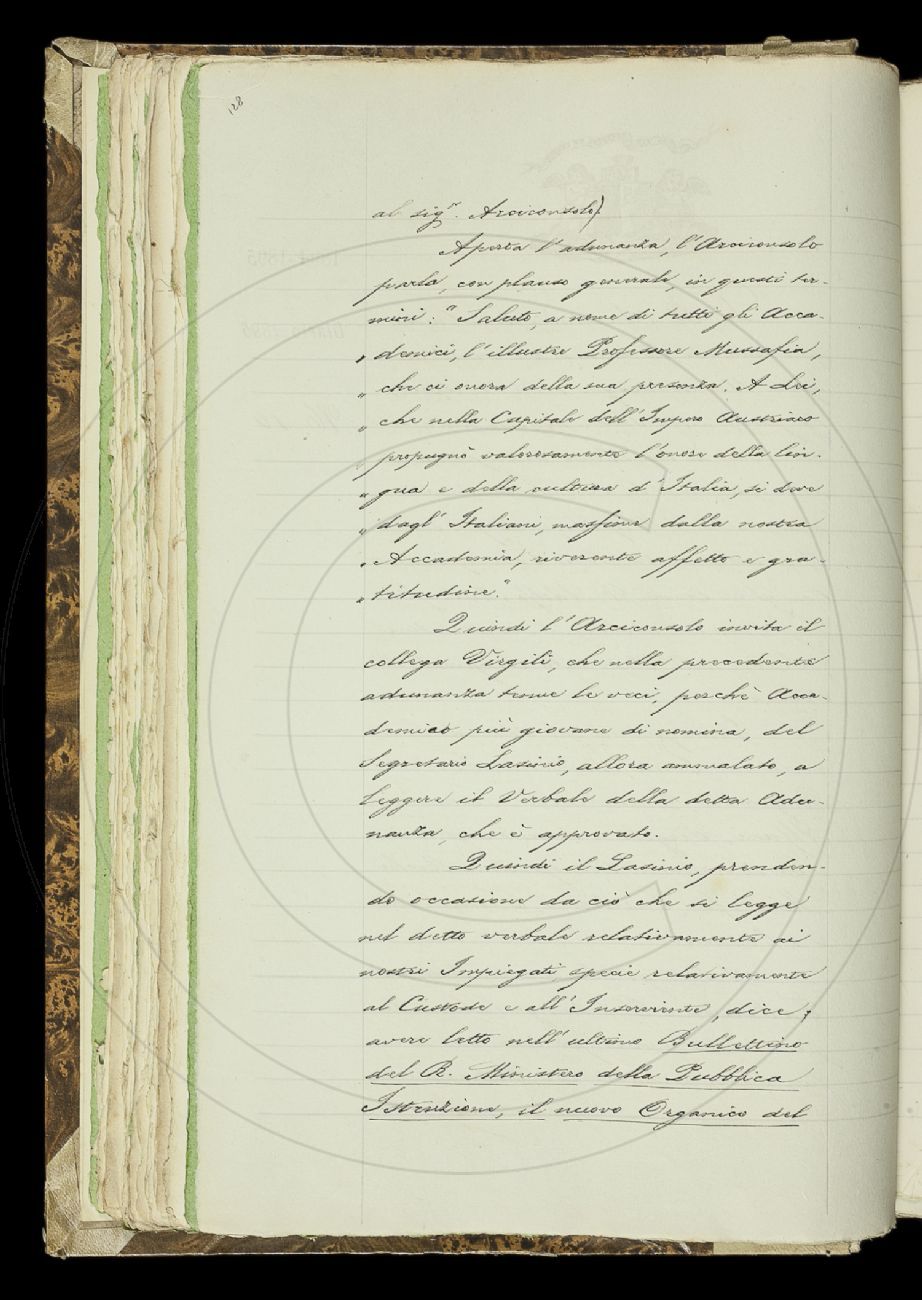 128
al sigr. Arciconsolo)
Aperta l'adunanza, l'Arciconsolo
parla, con plauso generale, in questi ter-
mini: "Saluto, a nome di tutti gli Acca-
" demici, l'illustre Professore Mussafia,
" che ci onora della sua presenza. A Lei,
" che nella Capitale dell'Impero Austriaco
" propugnò valorosamente l'onore della lin-
" gua e della cultura d'Italia, si deve
" dagl'Italiani, massime dalla nostra
" Accademia, riverente affetto e gra-
" titudine."
Quindi l'Arciconsolo invita il
collega Virgili, che nella precedente
adunanza tenne le veci, perchè Acca-
demico più giovane di nomina, del
Segretario Lasinio, allora ammalato, a
leggere il Verbale della detta Adu-
nanza, che è approvato.
Quindi il Lasinio, prenden-
do occasione da ciò che si legge
nel detto verbale relativamente ai
nostri Impiegati, specie relativamente
al Custode e all'Inserviente, dice,
avere letto nell'ultimo Bullettino
del R. Ministero della Pubblica
Istruzione, il nuovo Organico del